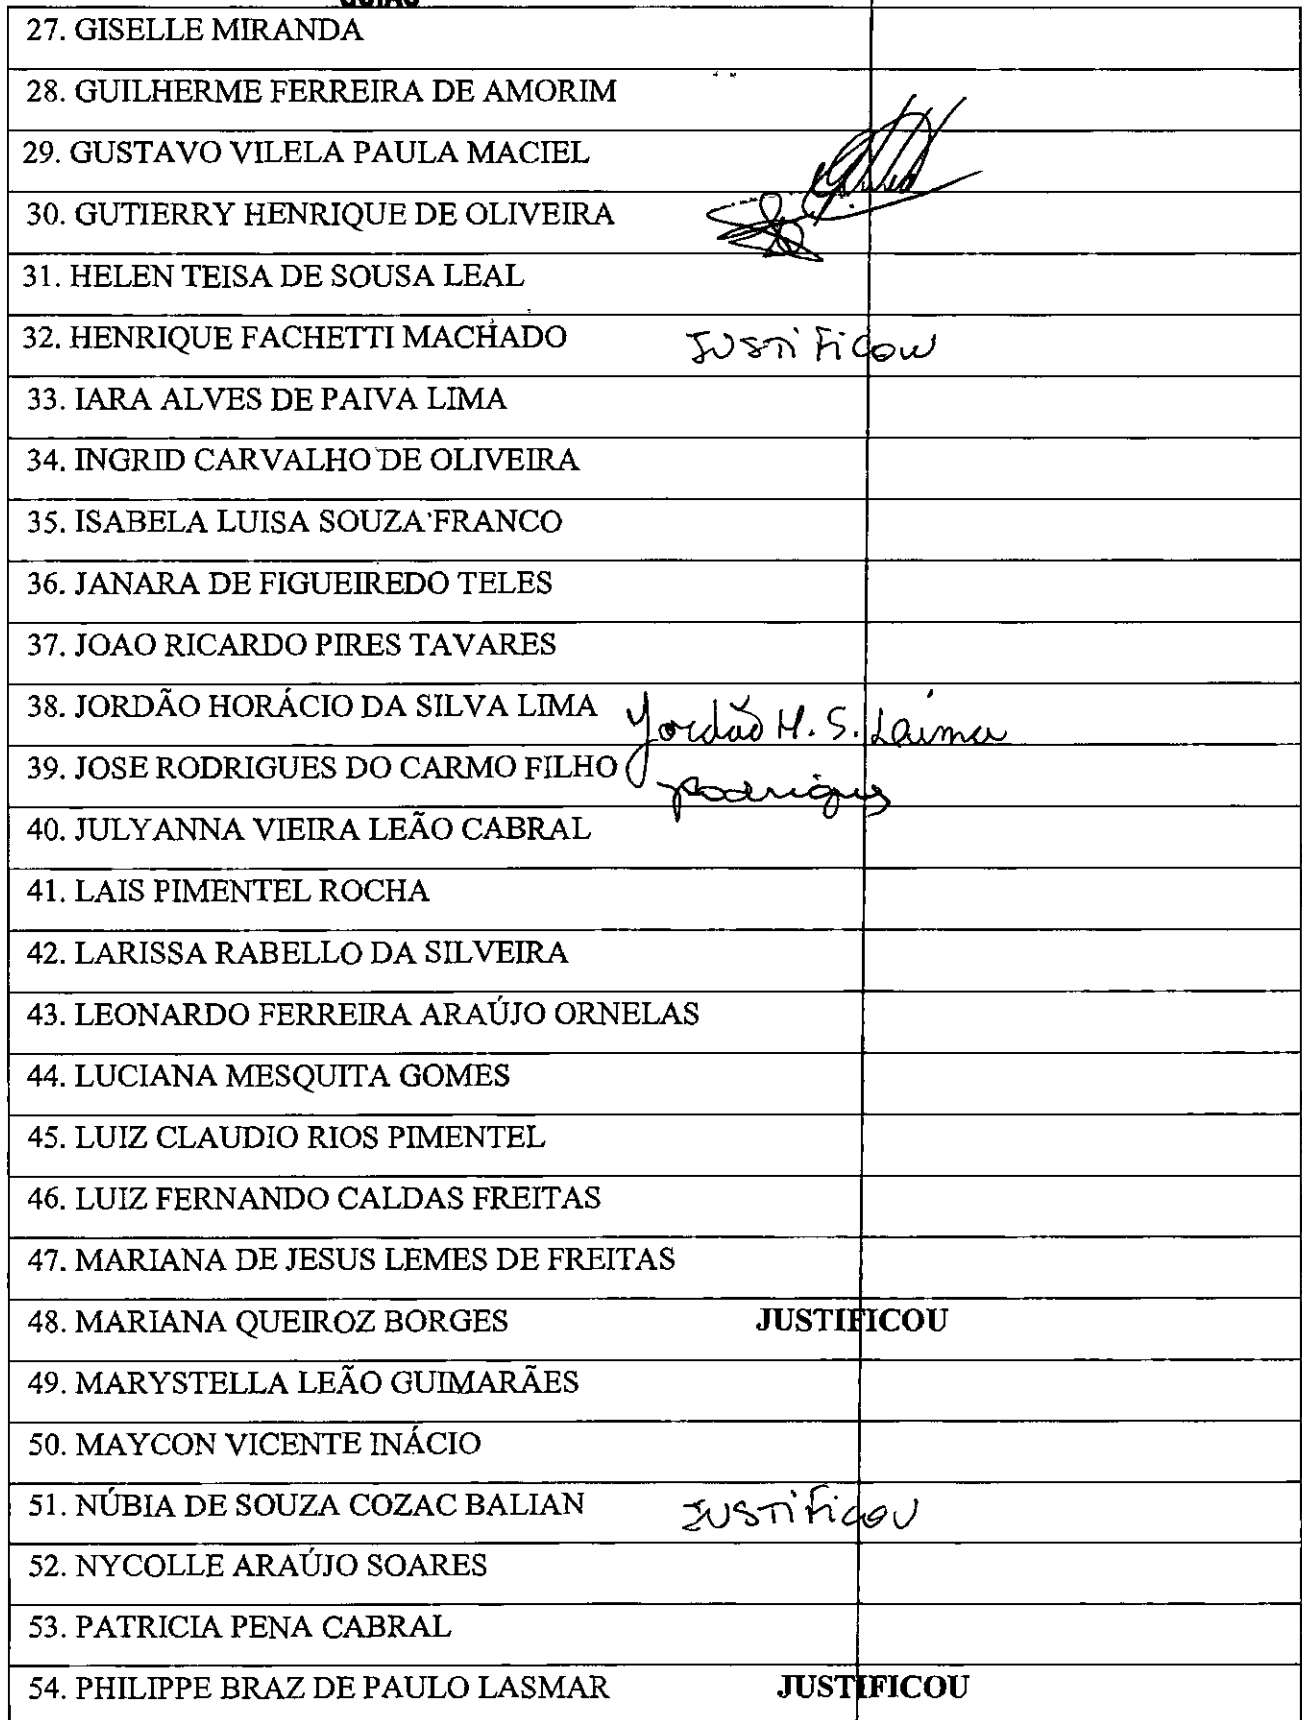 27. GISELLE MIRANDA
28. GUILHERME FERREIRA DE AMORIM
29. GUSTAVO VILELA PAULA MACIEL
30. GUTIERRY HENRIQUE DE OLIVEIRA
31. HELEN TEISA DE SOUSA LEAL
32. HENRIQUE FACHETTI MACHADO JUSTIFICOU
33. IARA ALVES DE PAIVA LIMA
34. INGRID CARVALHO DE OLIVEIRA
35. ISABELA LUISA SOUZA FRANCO
36. JANARA DE FIGUEIREDO TELES
37. JOAO RICARDO PIRES TAVARES
38. JORDÃO HORÁCIO DA SILVA LIMA Jordão H. S. Lima
39. JOSE RODRIGUES DO CARMO FILHO Rodrigues
40. JULYANNA VIEIRA LEÃO CABRAL
41. LAIS PIMENTEL ROCHA
42. LARISSA RABELLO DA SILVEIRA
43. LEONARDO FERREIRA ARAÚJO ORNELAS
44. LUCIANA MESQUITA GOMES
45. LUIZ CLAUDIO RIOS PIMENTEL
46. LUIZ FERNANDO CALDAS FREITAS
47. MARIANA DE JESUS LEMES DE FREITAS
48. MARIANA QUEIROZ BORGES JUSTIFICOU
49. MARYSTELLA LEÃO GUIMARÃES
50. MAYCON VICENTE INÁCIO
51. NÚBIA DE SOUZA COZAC BALIAN JUSTIFICOU
52. NYCOLLE ARAÚJO SOARES
53. PATRICIA PENA CABRAL
54. PHILIPPE BRAZ DE PAULO LASMAR JUSTIFICOU